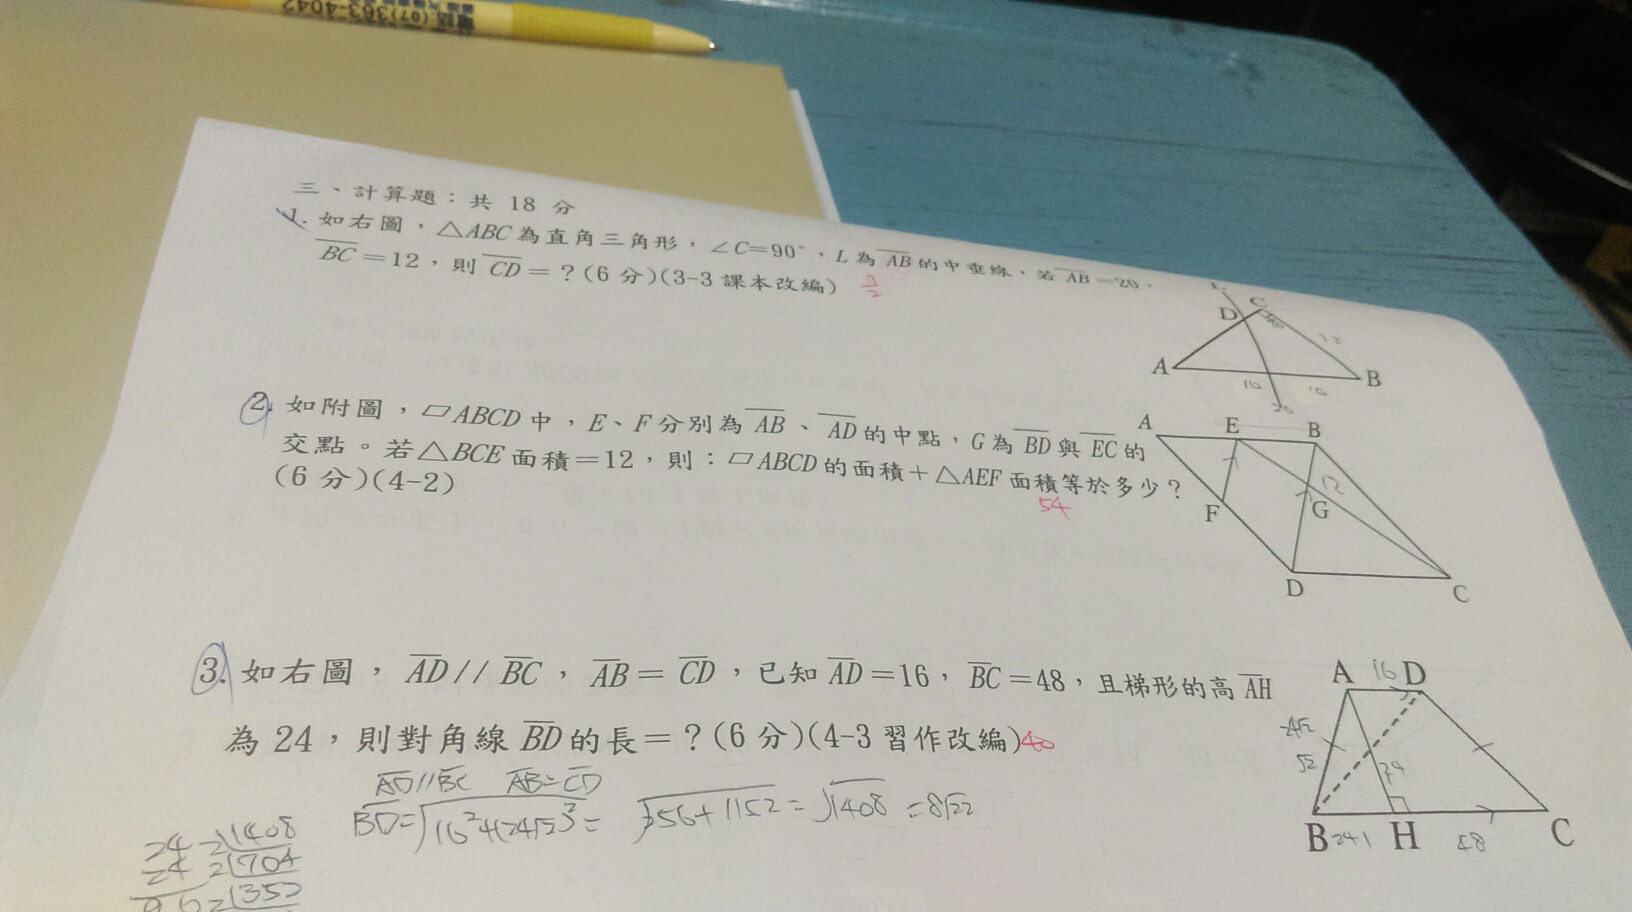 電話:(07)363-4042
三、計算題：共 18 分
1. 如右圖，△ABC 為直角三角形，∠C=90°，L 為 AB 的中垂線，若 AB=20，
BC=12，則 CD=？(6 分)(3-3 課本改編) 7/2
L
D C
12
A B
10 10
20
2. 如附圖，▱ABCD 中，E、F 分別為 AB、AD 的中點，G 為 BD 與 EC 的
交點。若△BCE 面積=12，則：▱ABCD 的面積+△AEF 面積等於多少？
(6 分)(4-2) 54
A E B
12
F G
D C
3. 如右圖，AD // BC，AB = CD，已知 AD=16，BC=48，且梯形的高 AH
為 24，則對角線 BD 的長=？(6 分)(4-3 習作改編) 40
A 16 D
24
B H 48 C
AD//BC AB=CD
BD=√16²+(24√2)²= √256+1152=√1408 =8√22
24 2|1408
24 2|704
96 2|352